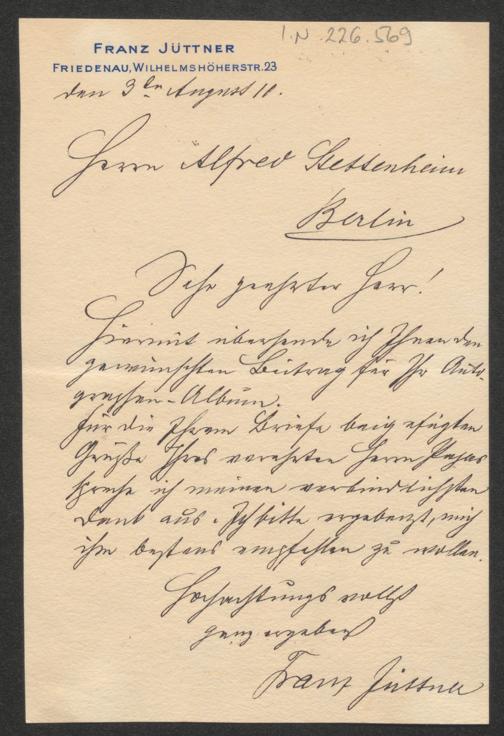 I.N. 226.569
FRANZ JÜTTNER
FRIEDENAU, WILHELMSHÖHERSTR. 23
den 3ten August 10.
Herrn Alfred Stettenheim
Berlin
Sehr geehrter Herr!
Hiermit übersende ich Ihnen den
gewünschten Beitrag für Ihr Auto-
graphen-Album.
Für die Ihrem Briefe beigefügten
Grüße Ihres verehrten Herrn Papas
spreche ich meinen verbindlichsten
Dank aus. Ich bitte ergebenst, mich
ihm bestens empfehlen zu wollen.
Hochachtungsvollst
ganz ergebenst
Franz Jüttner